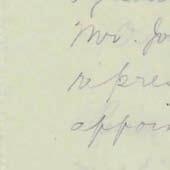 Mr. Jo
repres
appoin